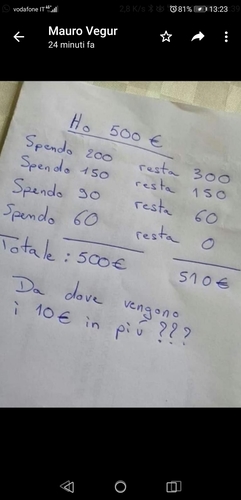 vodafone IT 81% 13:23
Mauro Vegur
24 minuti fa
Ho 500 €
Spendo 200 resta 300
Spendo 150 resta 150
Spendo 90 resta 60
Spendo 60 resta 0
Totale: 500€ 510€
Da dove vengono
i 10€ in più ???